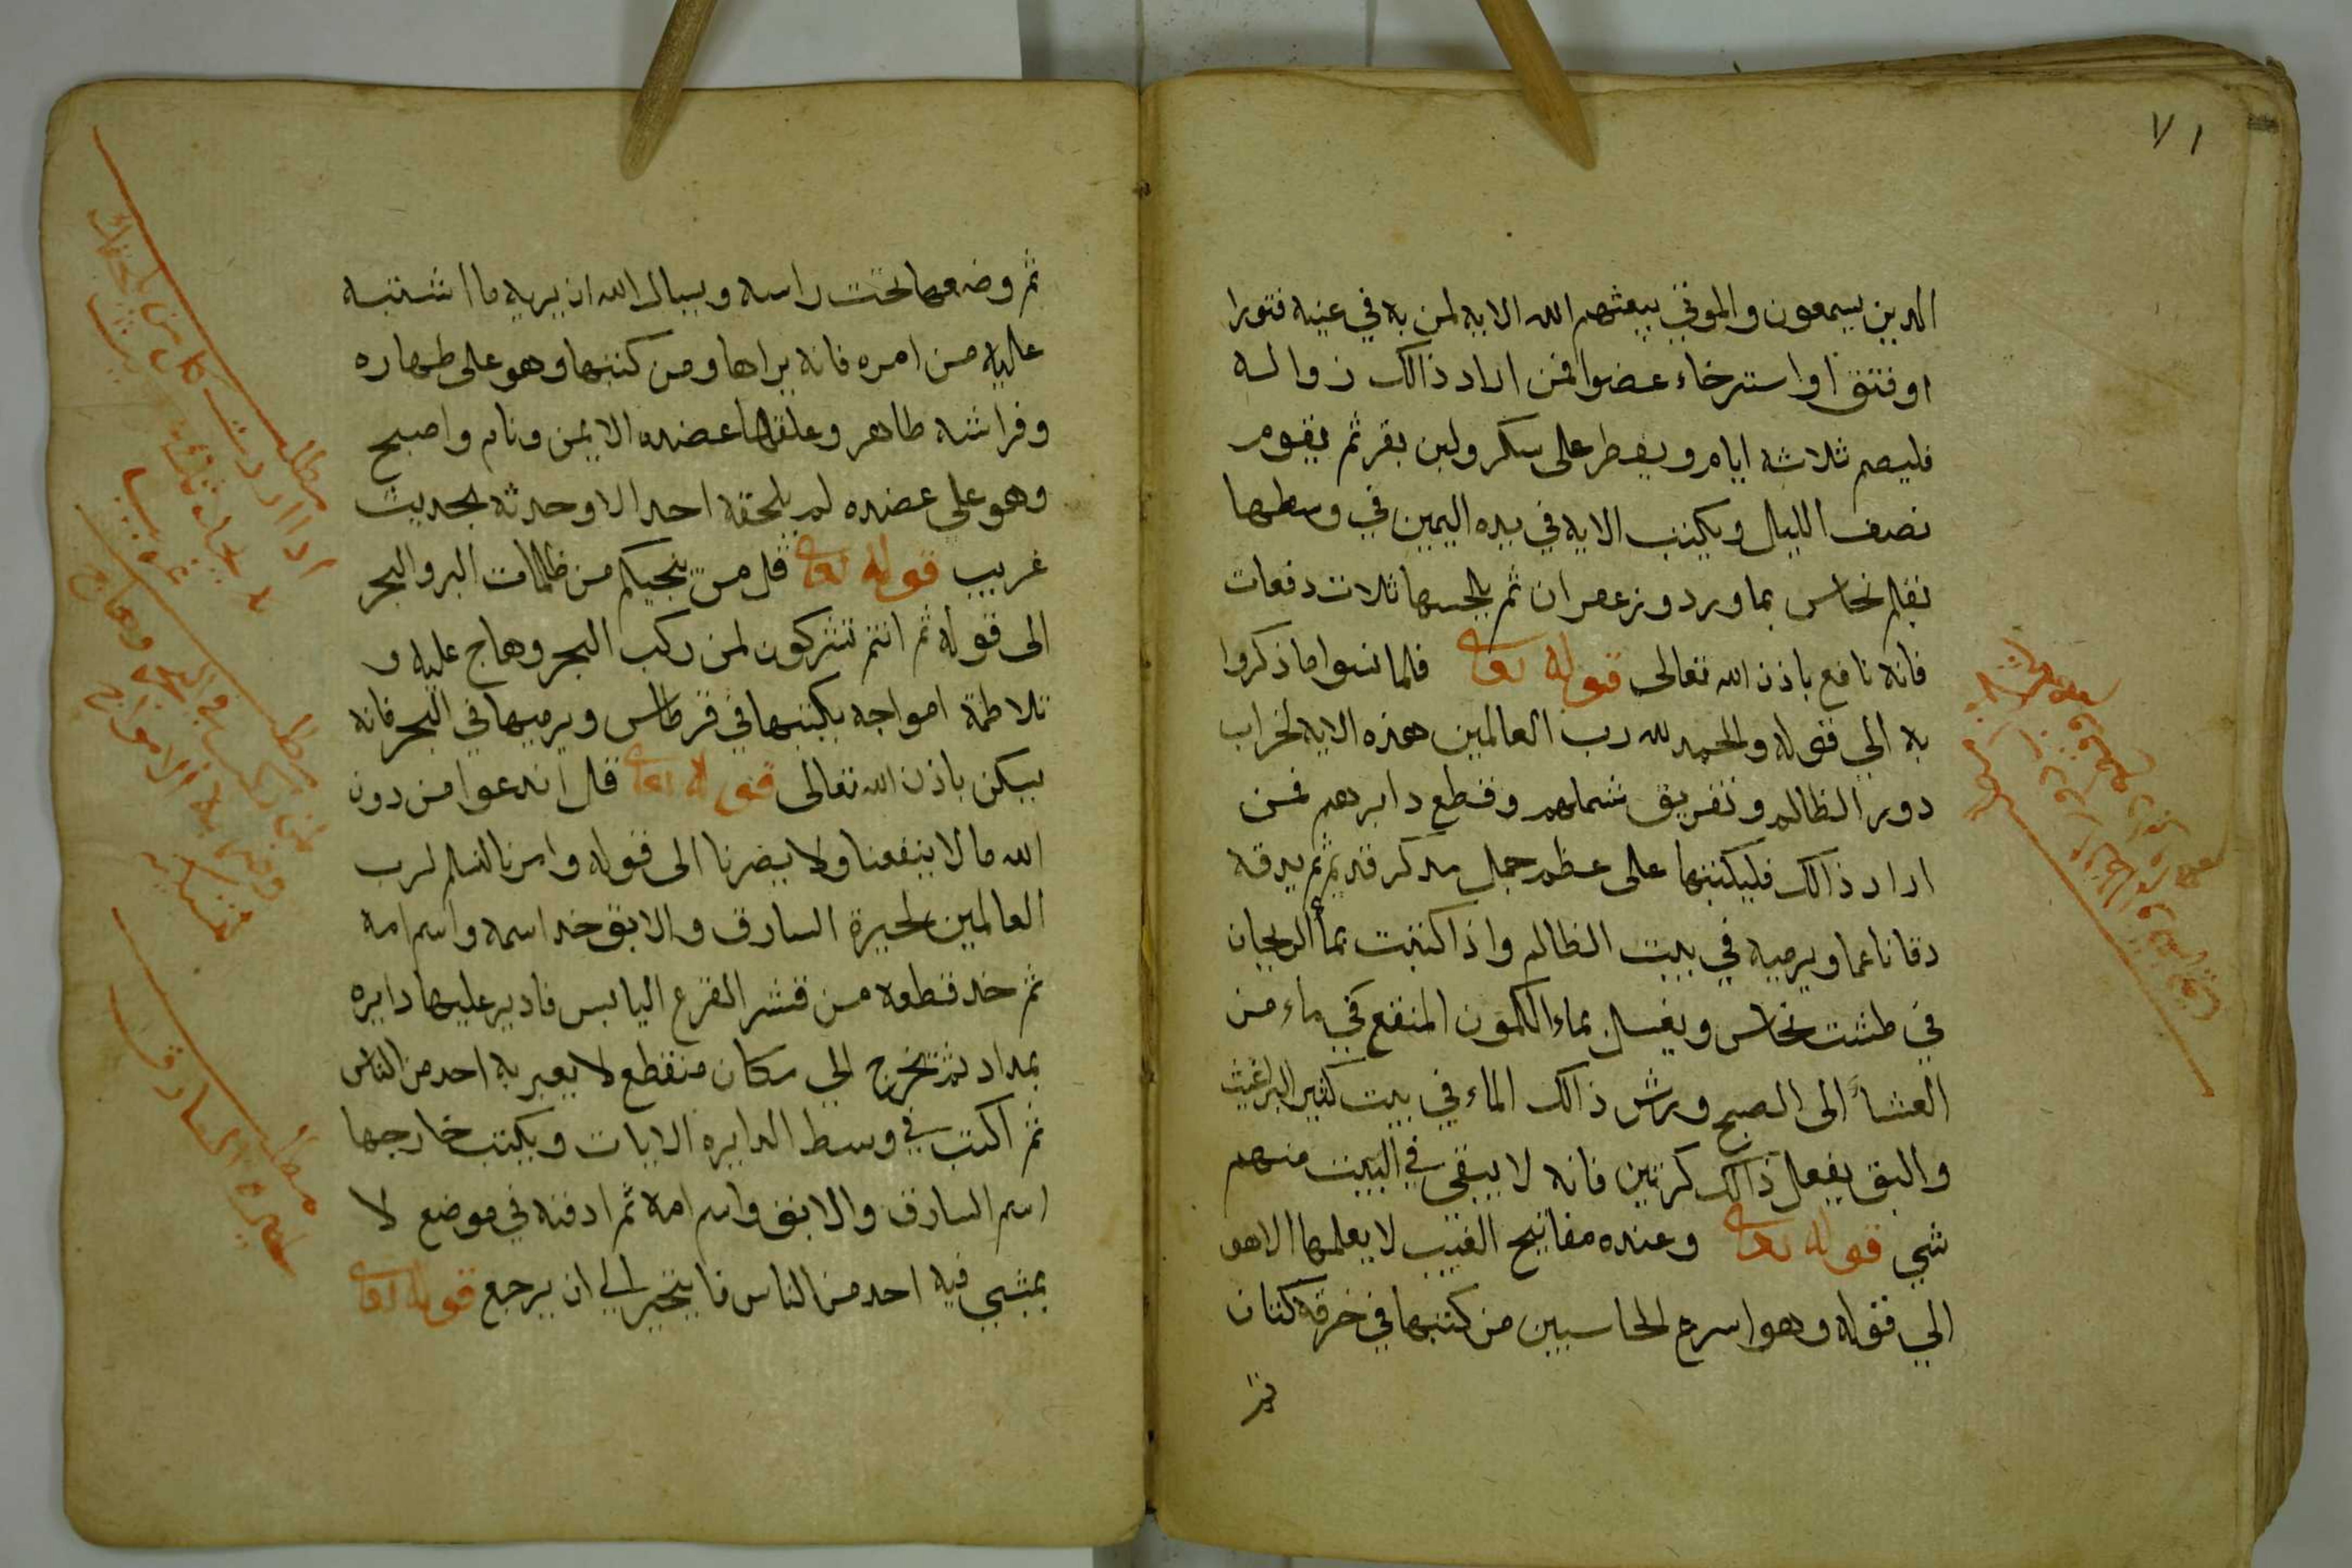 ٧١
الذين يسمعون والموتي يبعثهم الله الايه لمن به في عينيه فتورا
او فتق او استرخاء عضوا فمن اراد ذالك زواله
فليصم ثلاثة ايام ويفطر على سكر ولبن بقر ثم يقوم
نصف الليل ويكتب الايه في يده اليمين في وسطها
بقلم نحاس بماورد وزعفران ثم يلحسها ثلاث دفعات
فانه نافع باذن الله تعالى قوله تعالى فلما نسوا ما ذكروا
به الي قوله والحمد لله رب العالمين هذه الايه لخراب
دور الظالم وتفريق شملهم وقطع دابرهم فمن
اراد ذالك فليكتبها على عظم جمل ثم يدقه
دقا ناعما ويرميه في بيت الظالم واذا كتبت بماء الريحان
في طشت نحاس ويغسل بماء الكمون المنقع في ماء من
العشاء الى الصبح ورش ذالك الماء في بيت كثير البراغيث
والبق يفعل ذالك كرتين فانه لا يبقي في البيت منهم
شي قوله تعالى وعنده مفاتيح الغيب لا يعلمها الا هو
الي قوله وهو اسرع الحاسبين من كتبها في خرقة كتان
ثم
ثم وضعها تحت راسه ويسال الله ان يريه ما اشتبه
عليه من امره فانه يراها ومن كتبها وهو على طهاره
وفراشه طاهر وعلقها عضده الايمن ونام واصبح
وهو علي عضده لم يلحقه احدا الا وحدثه بحديث
غريب قوله تعالى قل من ينجيكم من ظلمات البر والبحر
الى قوله ثم انتم تشركون لمن ركب البحر وهاج عليه و
تلاطمة امواجه يكتبها في قرطاس ويرميها في البحر فانه
يسكن باذن الله تعالى قوله تعالى قل اندعوا من دون
الله ما لا ينفعنا ولا يضرنا الى قوله وامرنا لنسلم لرب
العالمين لحيرة السارق والابق خد اسمه واسم امه
ثم خد قطعه من قشر القزع اليابس فادير عليها دايره
بمداد ثم تخرج الي مكان منقطع لا يعبر به احد من الناس
ثم اكتب في وسط الدايره الايات ويكتب خارجها
اسم السارق والابق واسم امه ثم ادفنه في موضع لا
يمشي فيه احد من الناس فا يتحير الي ان يرجع قوله تعالى
مطلب
مطلب
لمن ركب في البحر وهاج
مطلب
لحيرة السارق